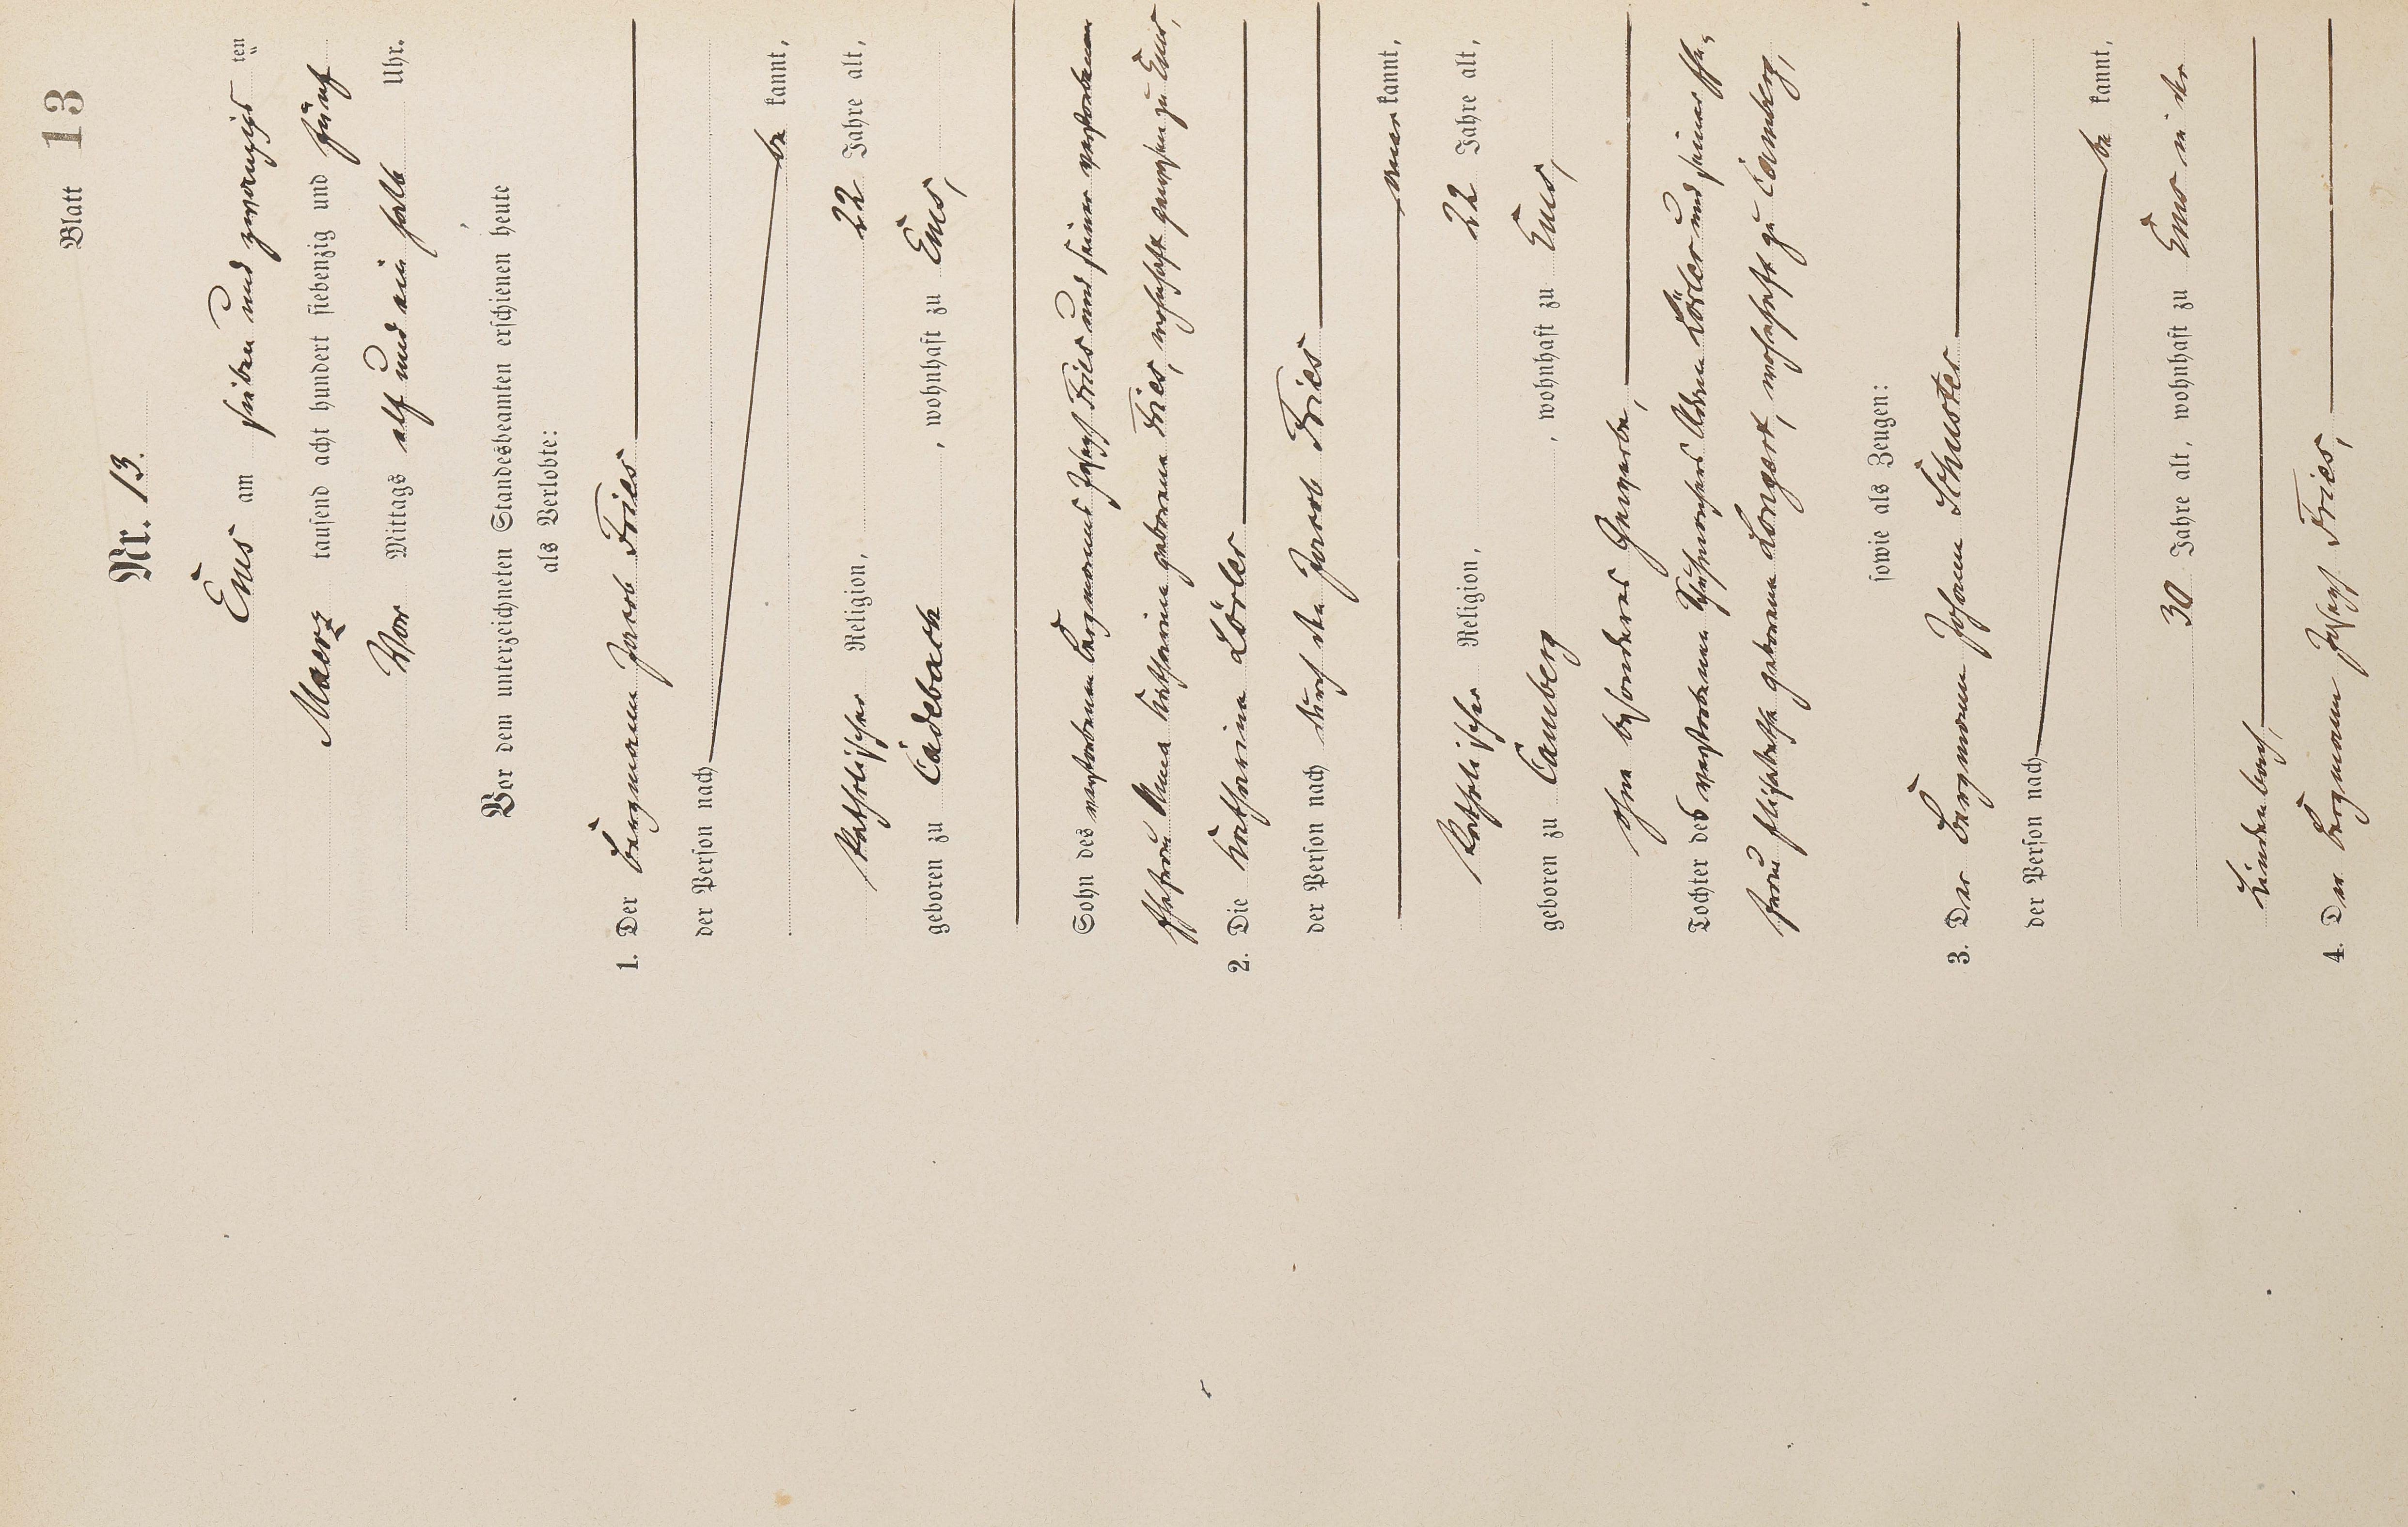 Blatt 13
Nr. 13.
Ems am sieben und zwanzigsten
Maerz tausend acht hundert siebenzig und fünf
Vor Mittags elf und ein halb Uhr.
Vor dem unterzeichneten Standesbeamten erschienen heute
als Verlobte:
1. Der Bergmann Jacob Fries
der Person nach
be kannt,
Katholischer Religion, 22 Jahre alt,
geboren zu Cadebach, wohnhaft zu Ems,
Sohn des verstorbenen Bergmannes Joseph Fries und seiner verstorbenen
Ehefrau Anna Katharina geborene Fries, wohnhaft gewesen zu Ems,
2. Die Katharina Lörler
der Person nach durch den Jacob Fries
aner kannt,
Katholischer Religion, 22 Jahre alt,
geboren zu Camberg, wohnhaft zu Ems,
ohne besonderes Gewerbe,
Tochter des verstorbenen Adam Lörler und seiner Ehe-
frau Elisabetha geborene, wohnhaft zu Camberg,
sowie als Zeugen:
3. Der Bergmann Johann Schuster
der Person nach
be kannt,
30 Jahre alt, wohnhaft zu Ems in der
Lindenbach,
4. Der Bergmann Joseph Fries,